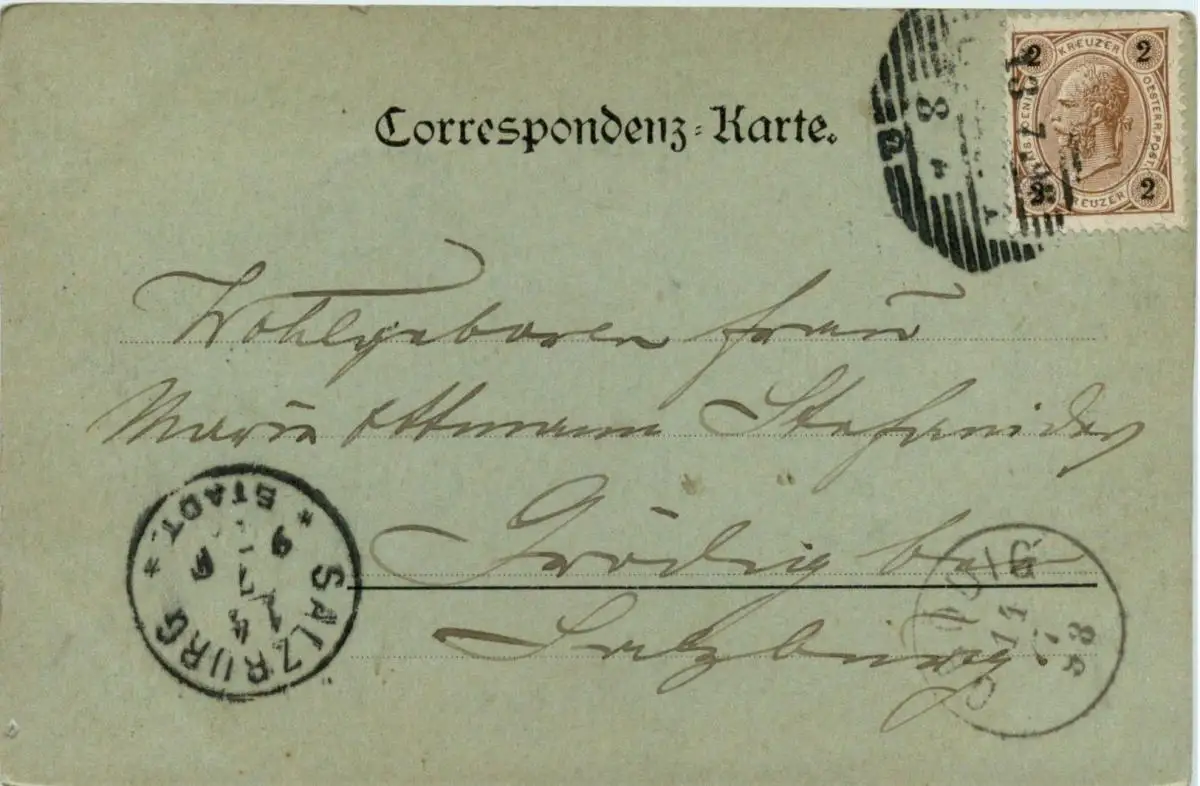 Correspondenz-Karte.
2 KREUZER 2
OESTERR.POST.
2 KREUZER 2
13 7
8
Wohlgeboren Frau
Marie Ottmann Stefanides
Grödig bei
Salzburg.
SALZBURG
* STADT. *
14
7
9
14
7
98